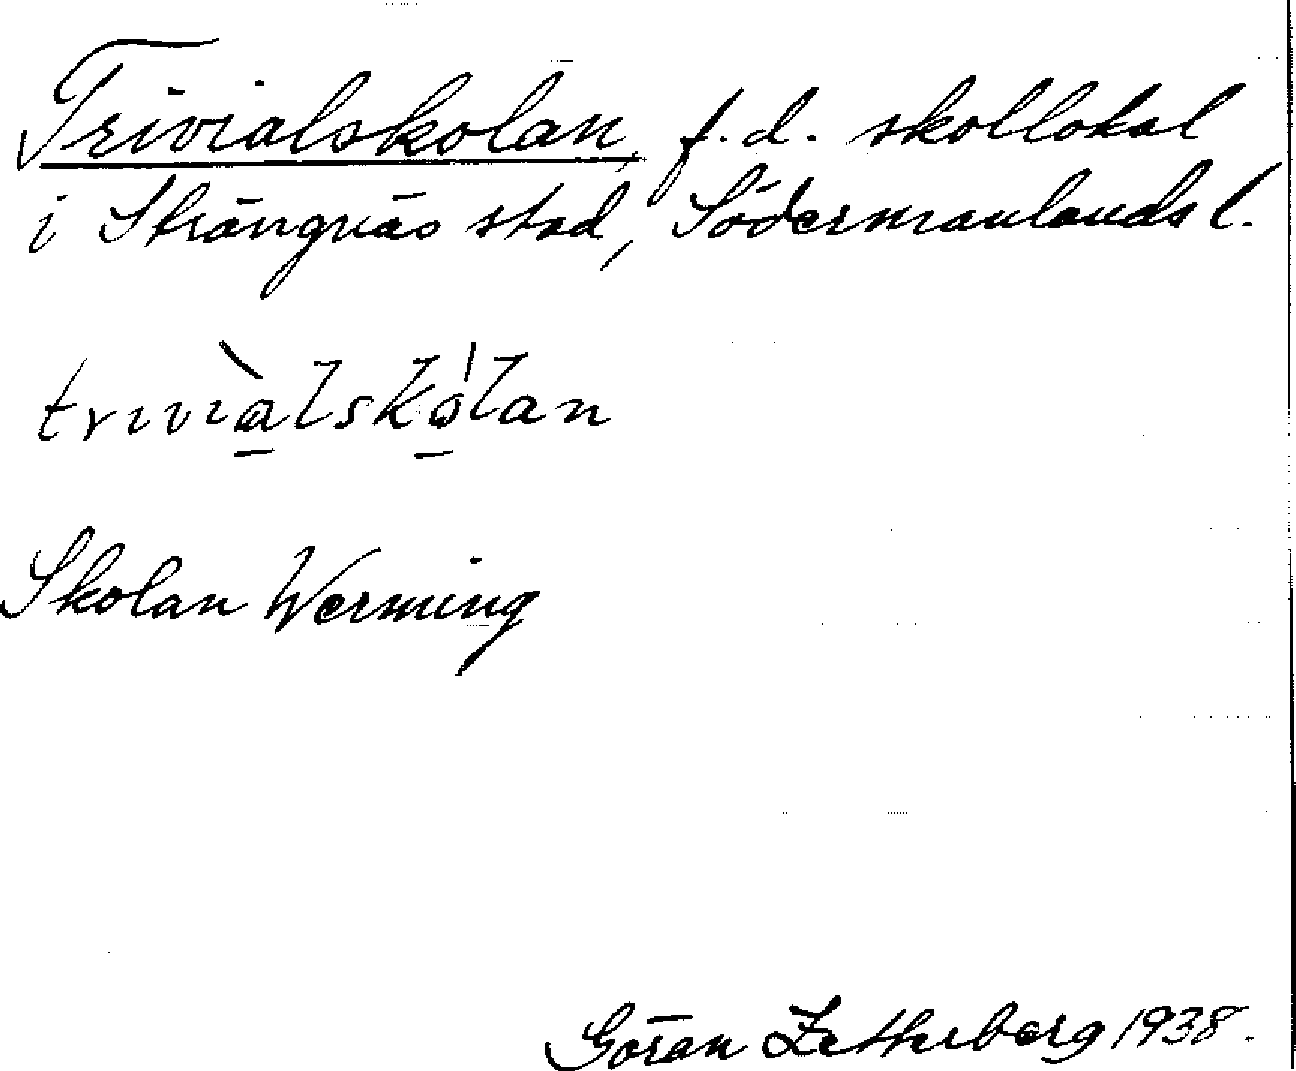 Trivialskolan, f.d. skollokal
i Strängnäs stad, Södermanlands l.
trivìalsko̍lan
Skolan Werming
Göran Zetterberg 1938.